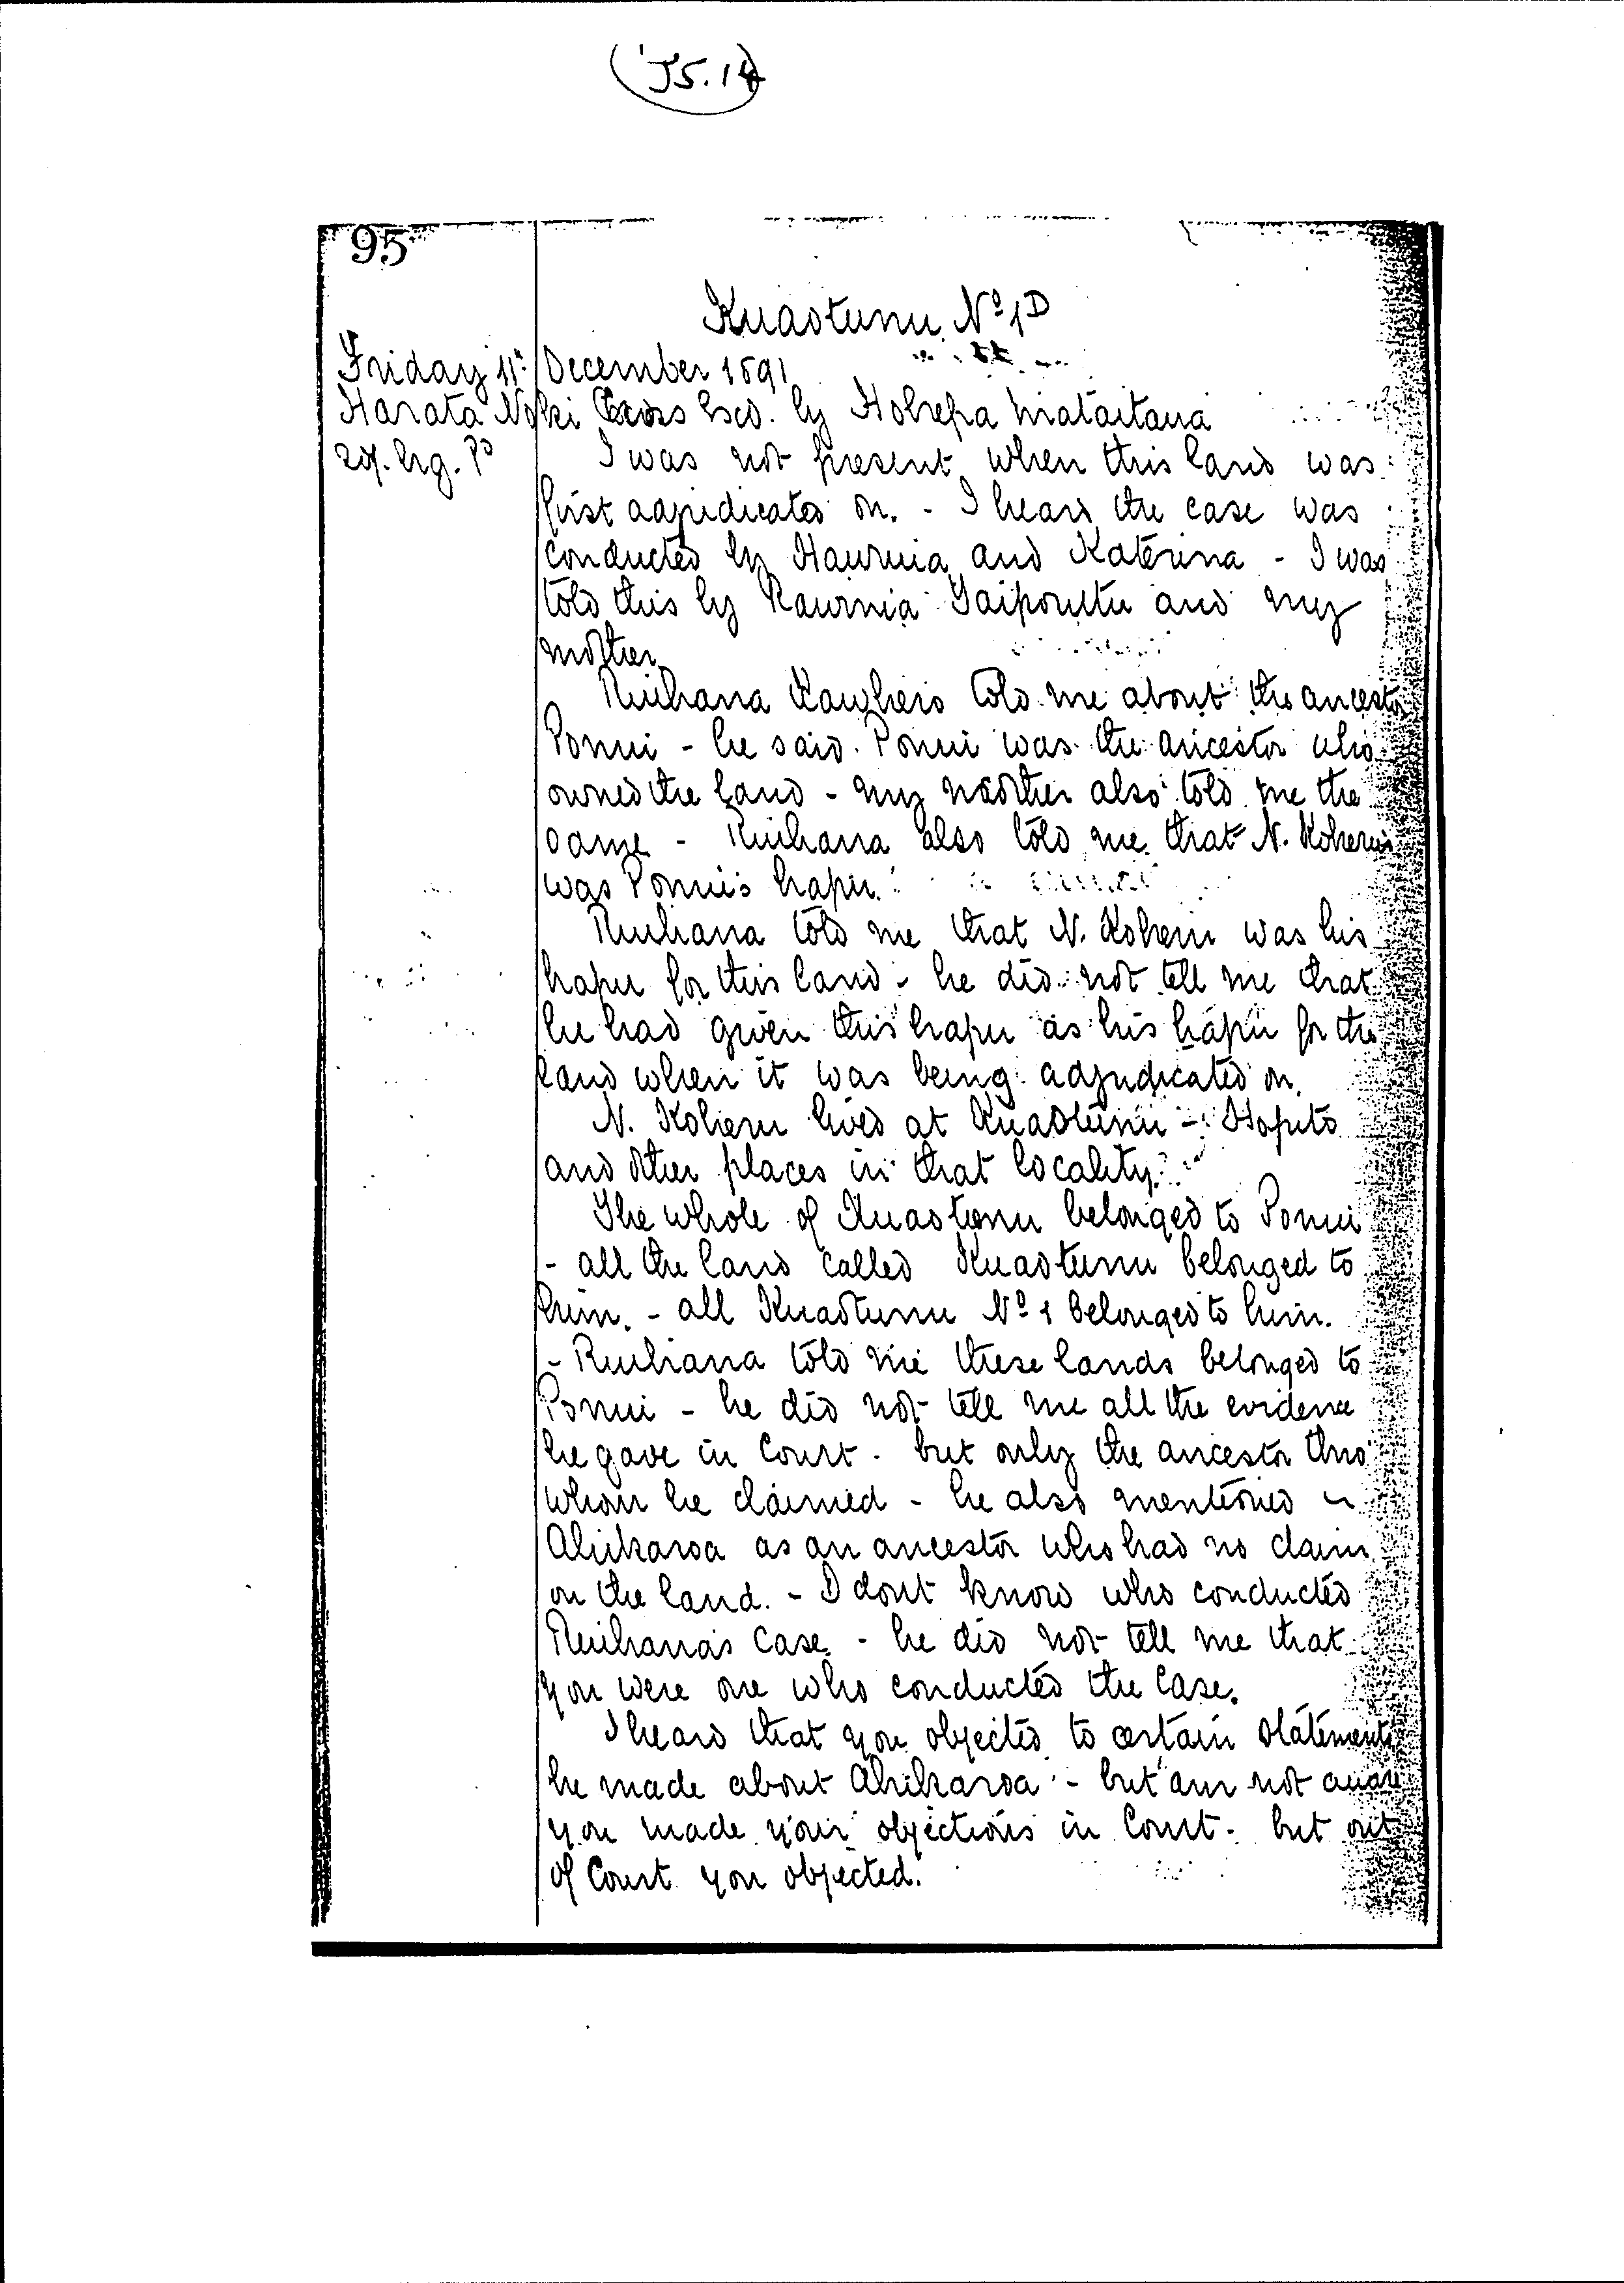 (J5.14)
95
Kuaotunu No 1D
Friday 11th December 1891
Harata Noki Cross Exd. by Hohepa Mataitaua
I was not present when this land was
first adjudicated on. - I heard the case was
conducted by Haurua and Katerina - I was
told this by Raumia Taiporutu and my
mother.
Ruihana Kawhero told me about the ancestor
Ponui - he said Ponui was the ancestor who
owned the land - my mother also told me the
same - Ruihana also told me that N. Koheru
was Ponui's hapu.
Ruihana told me that N. Koheru was his
hapu for this land - he did not tell me that
he had given this hapu as his hapu for the
land when it was being adjudicated on.
N. Koheru lived at Kuaotunu - Otopito
and other places in that locality.
The whole of Kuaotunu belonged to Ponui
- all the land called Kuaotunu belonged to
him. - all Kuaotunu No 1 belonged to him.
- Ruihana told me these lands belonged to
Ponui - he did not tell me all the evidence
he gave in Court - but only the ancestor thro'
whom he claimed - he also mentioned
Ahikaroa as an ancestor who had no claim
on the land. - I dont know who conducted
Ruihana's case. - he did not tell me that
you were one who conducted the case.
I heard that you objected to certain statements
he made about Ahikaroa - but am not aware
you made your objections in Court - but out
of Court you objected.